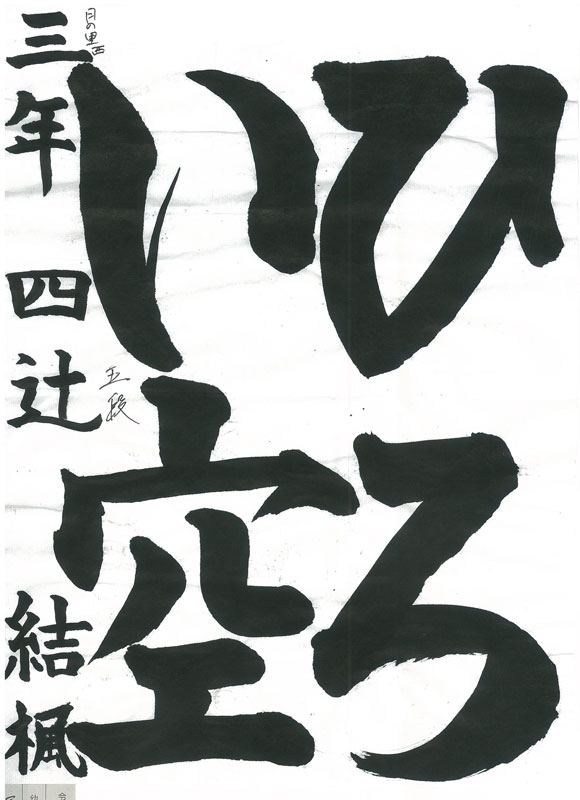 ひろ
い空
三年 四辻 結楓
日の里西
五段